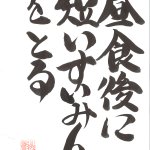 昼食後に
短いすいみん
をとる